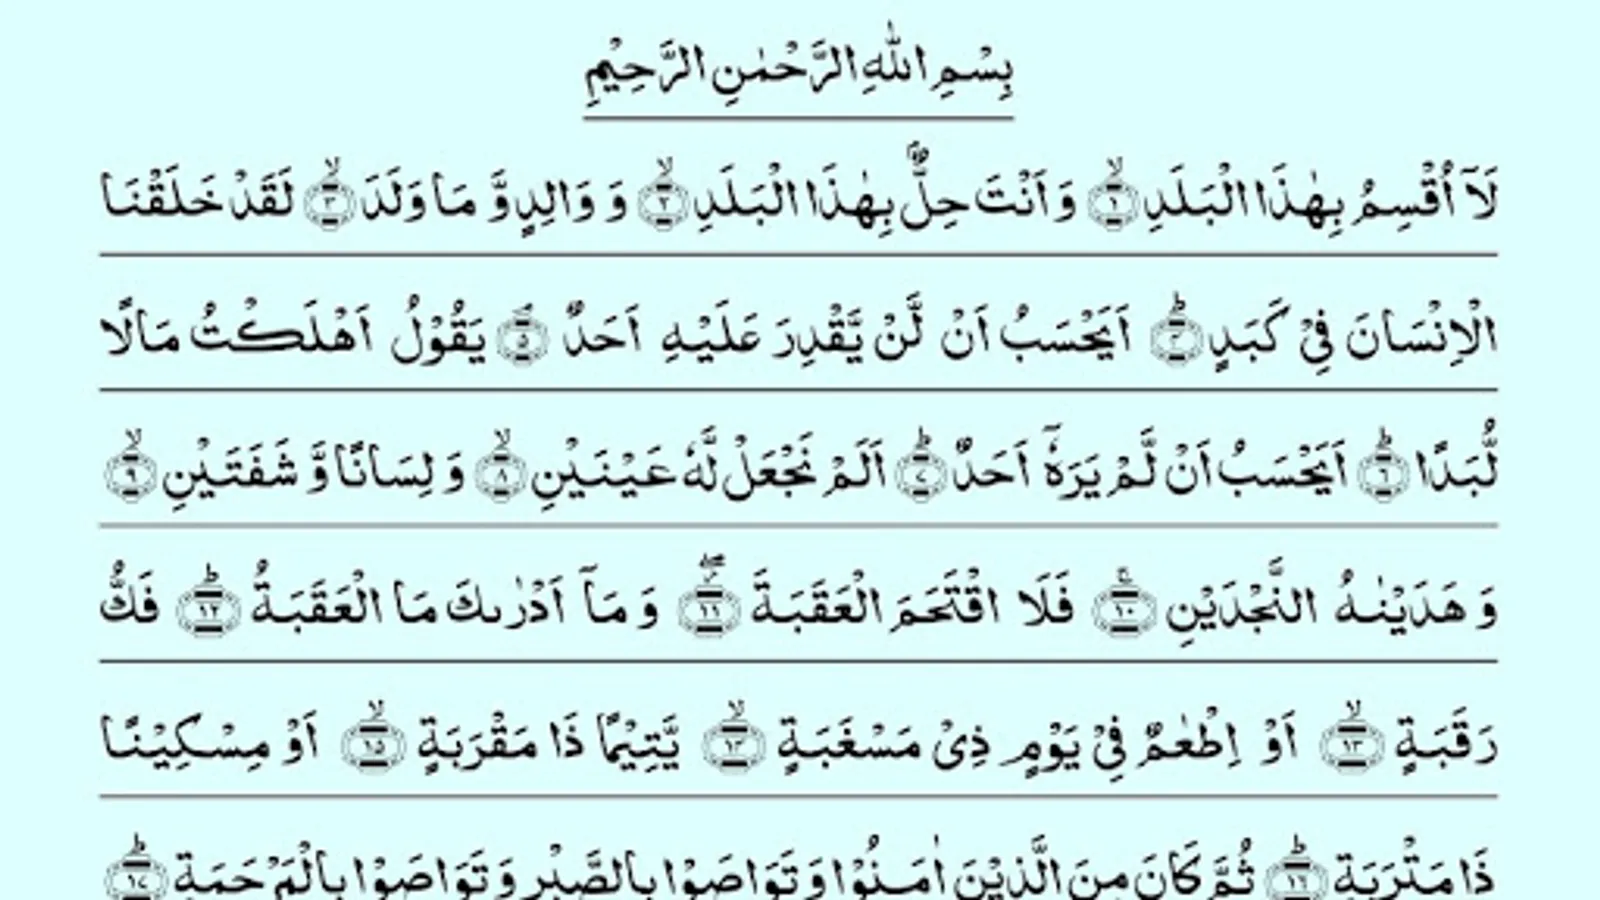 بِسْمِ اللّٰهِ الرَّحْمٰنِ الرَّحِيْمِ
لَآ اُقْسِمُ بِهٰذَا الْبَلَدِ ۙ‏﴿۱﴾ وَ اَنْتَ حِلٌّۢ بِهٰذَا الْبَلَدِ ۙ‏﴿۲﴾ وَ وَالِدٍ وَّ مَا وَلَدَ ۙ‏﴿۳﴾ لَقَدْ خَلَقْنَا
الْاِنْسَانَ فِىْ كَبَدٍ ؕ‏﴿۴﴾ اَيَحْسَبُ اَنْ لَّنْ يَّقْدِرَ عَلَيْهِ اَحَدٌ ۘ‏﴿۵﴾ يَقُوْلُ اَهْلَكْتُ مَالًا
لُّبَدًا ؕ‏﴿۶﴾ اَيَحْسَبُ اَنْ لَّمْ يَرَهٗۤ اَحَدٌ ؕ‏﴿۷﴾ اَلَمْ نَجْعَلْ لَّهٗ عَيْنَيْنِ ۙ‏﴿۸﴾ وَ لِسَانًا وَّ شَفَتَيْنِ ۙ‏﴿۹﴾
وَ هَدَيْنٰهُ النَّجْدَيْنِ ۚ‏﴿۱۰﴾ فَلَا اقْتَحَمَ الْعَقَبَةَ ۖ‏﴿۱۱﴾ وَ مَاۤ اَدْرٰىكَ مَا الْعَقَبَةُ ؕ‏﴿۱۲﴾ فَكُّ
رَقَبَةٍ ۙ‏﴿۱۳﴾ اَوْ اِطْعٰمٌ فِىْ يَوْمٍ ذِىْ مَسْغَبَةٍ ۙ‏﴿۱۴﴾ يَّتِيْمًا ذَا مَقْرَبَةٍ ۙ‏﴿۱۵﴾ اَوْ مِسْكِيْنًا
ذَا مَتْرَبَةٍ ؕ‏﴿۱۶﴾ ثُمَّ كَانَ مِنَ الَّذِيْنَ اٰمَنُوْا وَ تَوَاصَوْا بِالصَّبْرِ وَ تَوَاصَوْا بِالْمَرْحَمَةِ ؕ‏﴿۱۷﴾